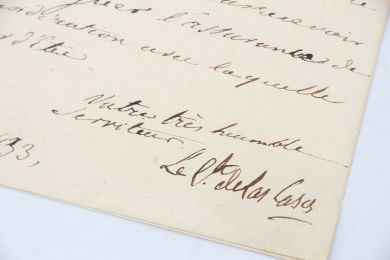 l'assurance de
considération avec laquelle
d'être
Votre très humble
Serviteur
Le Cte de las Cases
33,